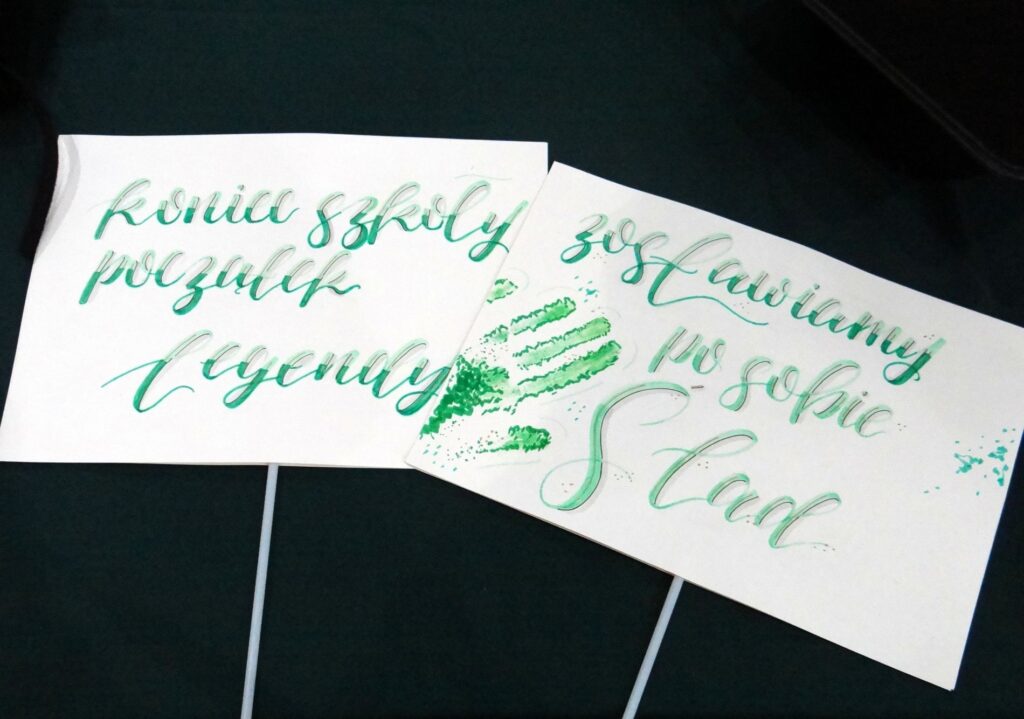 koniec szkoły
początek
legendy
zostawiamy
po sobie
Ślad